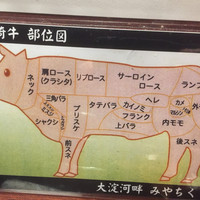 崎牛 部位図
ネック
肩ロース
(クラシタ)
リブロース
サーロイン
ロース
ラン
ヘレ
三角バラ
タテバラ
カイノミ
フランク
上バラ
ブリスケ
シャクシ
カメ
内モモ
前スネ
後スネ
大淀河畔 みやちく